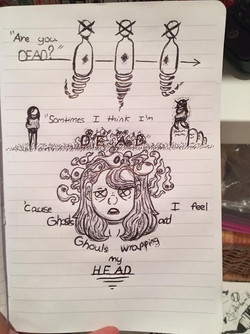 "Are you
DEAD?"
"Somtimes I think I'm
DEAD
'Cause I feel
Ghosts and
Ghouls wrapping
my
HEAD